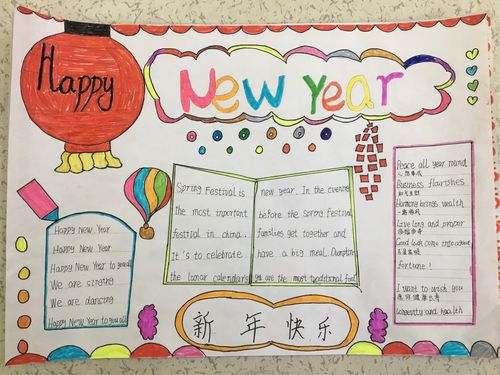 Happy
New Year
Happy New Year
Happy New Year
Happy New Year to you all
We are singing
We are dancing
Happy New Year to you all
Spring Festival is
the most important
festival in china.
It's to celebrate
the lunar calendar's
new year. In the evening
before the spring festival
families get together and
have a big meal. Dumplings
are the most traditional food.
Peace all year round
Business flourishes
Harmony brings wealth
一路顺风
Live long and proper
Good luck come into
吉星高照
fortune!
I want to wish you
longevity and health
新年快乐